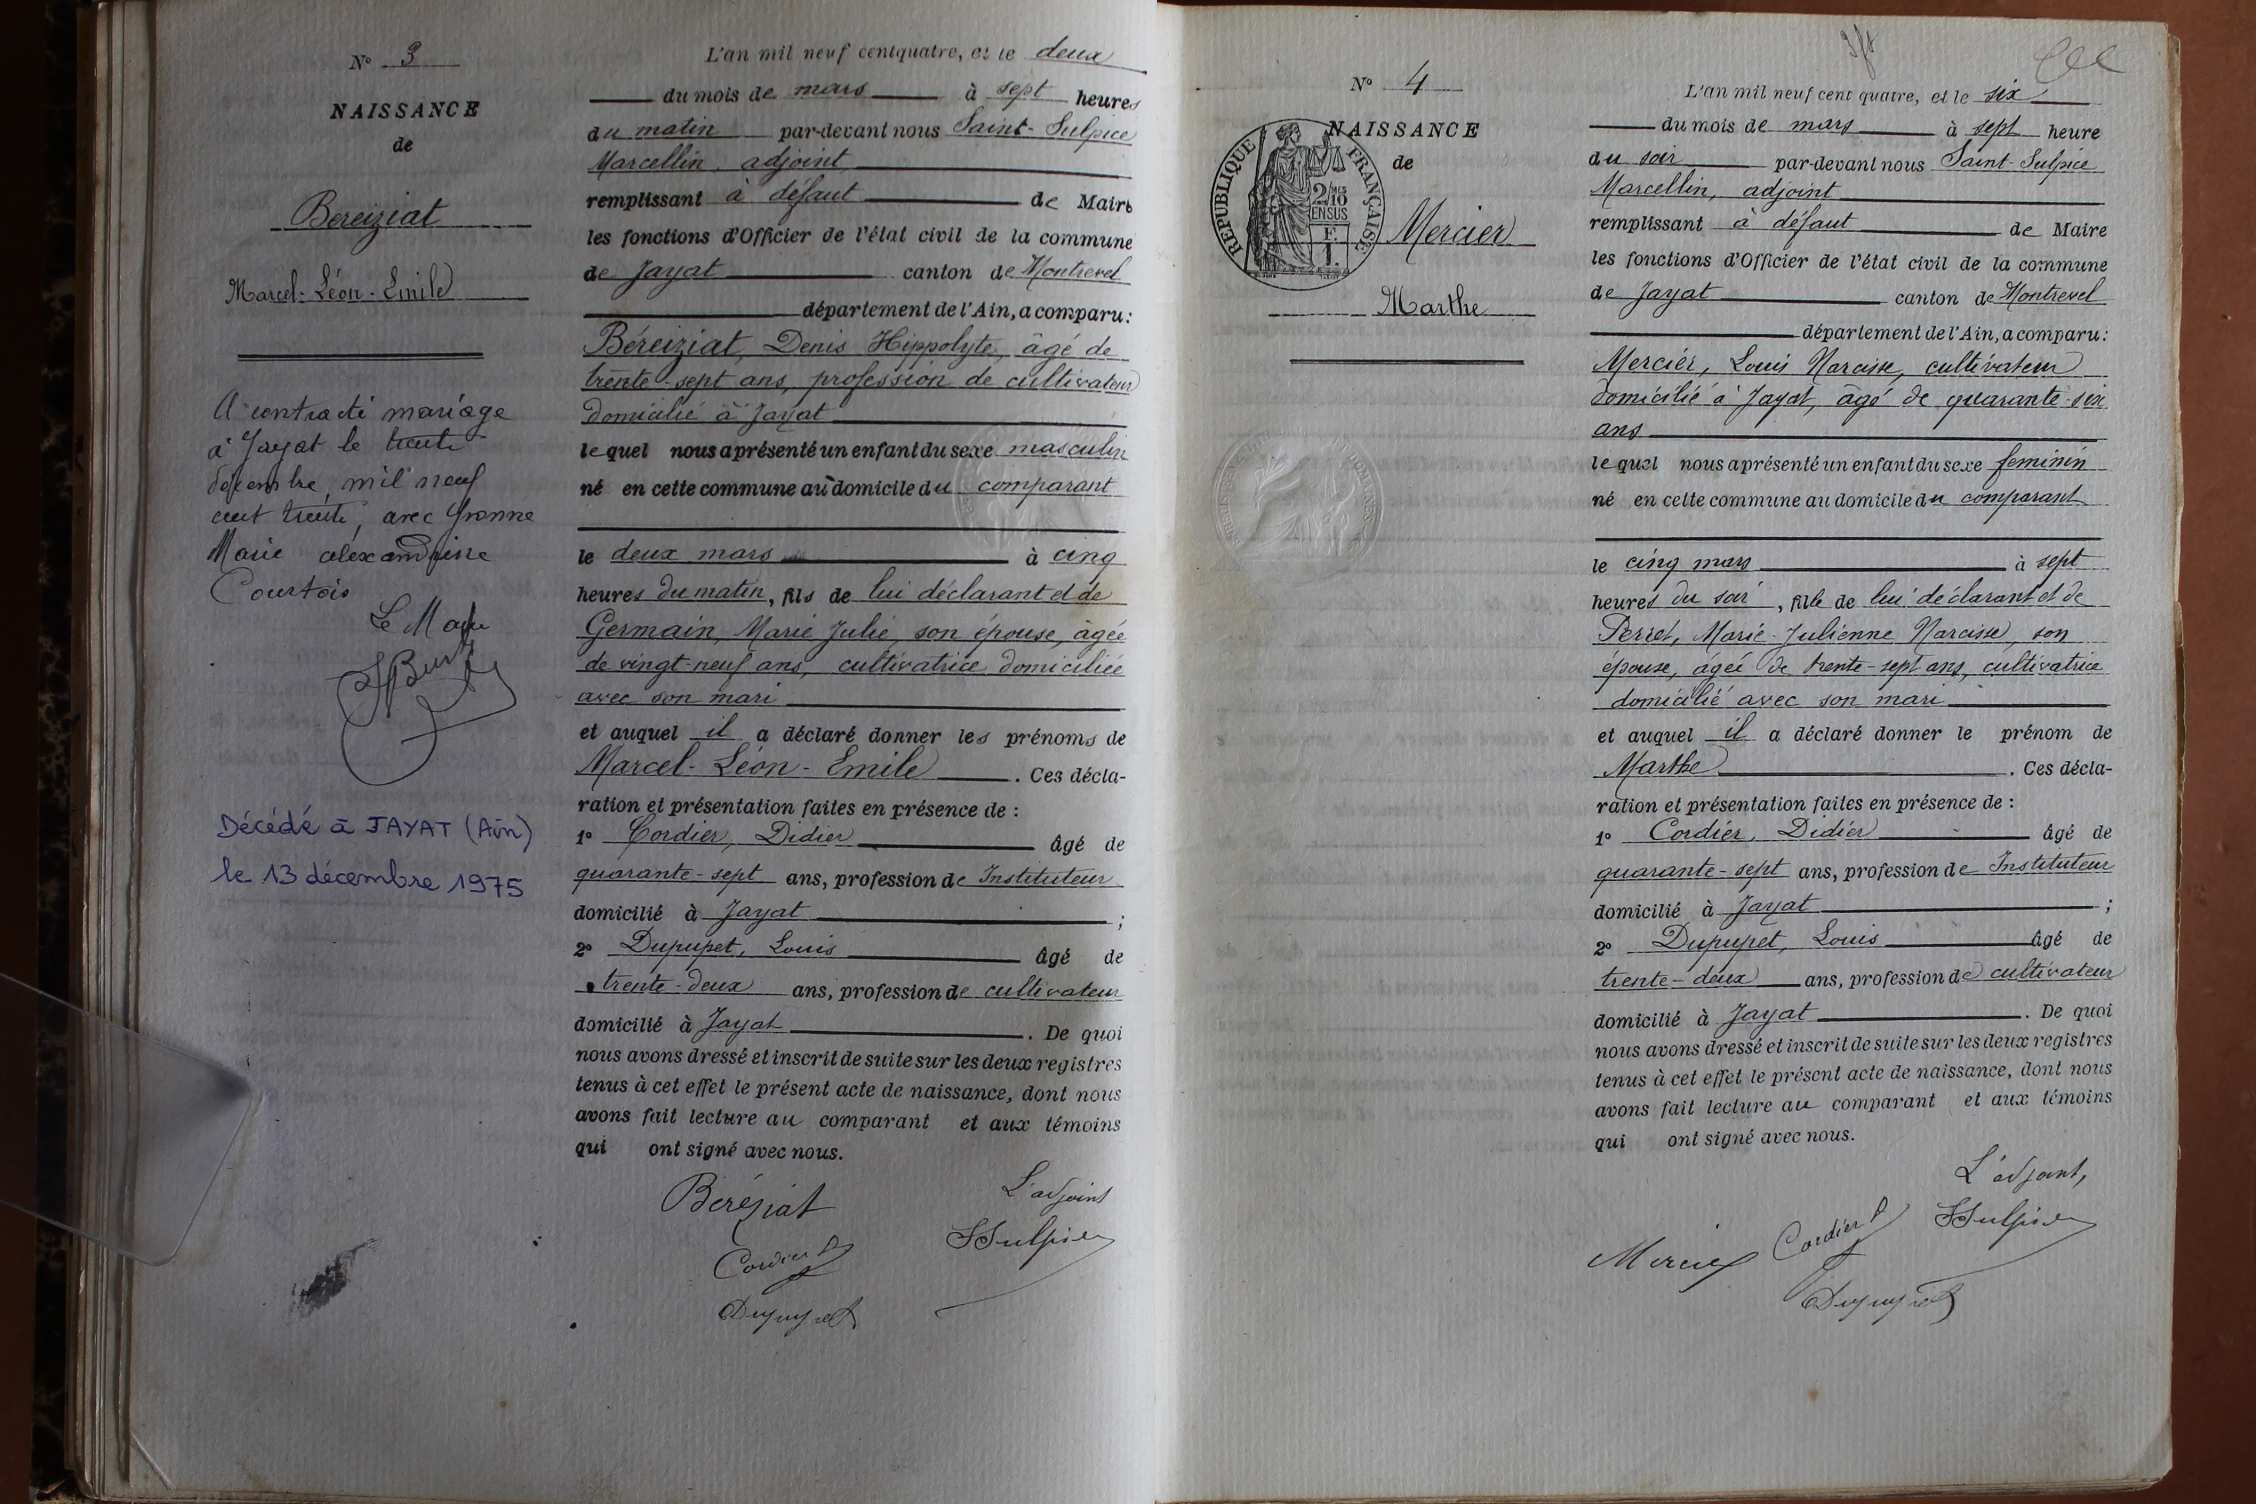 N° 3
NAISSANCE
de
Bereiziat
Marcel-Léon-Emile
A contracté mariage
à Jayat le trente
décembre, mil neuf
cent trente, avec
Marie alexandrine
Courtois
Le Maire
Décédé à JAYAT (Ain)
le 13 décembre 1975
L'an mil neuf cent quatre, et le deux
du mois de mars à sept heures
du matin par-devant nous Saint-Sulpice
Marcellin, adjoint
remplissant à défaut de Maire
les fonctions d'Officier de l'état civil de la commune
de Jayat canton de Montrevel
département de l'Ain, a comparu:
Béreiziat, Denis Hippolyte, âgé de
trente-sept ans, profession de cultivateur
domicilié à Jayat
lequel nous a présenté un enfant du sexe masculin
né en cette commune au domicile du comparant
le deux mars à cinq
heures du matin, fils de lui déclarant et de
Germain, Marie Julie, son épouse, âgée
de vingt-neuf ans, cultivatrice domiciliée
avec son mari
et auquel il a déclaré donner les prénoms de
Marcel-Léon-Emile. Ces décla-
ration et présentation faites en présence de :
1° Cordier, Didier âgé de
quarante-sept ans, profession de Instituteur
domicilié à Jayat ;
2° Dupupet, Louis âgé de
trente-deux ans, profession de cultivateur
domicilié à Jayat. De quoi
nous avons dressé et inscrit de suite sur les deux registres
tenus à cet effet le présent acte de naissance, dont nous
avons fait lecture au comparant et aux témoins
qui ont signé avec nous.
Beréziat
L'adjoint
SSulpice
Cordier D
Dupupet
N° 4
NAISSANCE
de
RÉPUBLIQUE FRANÇAISE
2/10 MES
EN SUS
F.
1.
Mercier
Marthe
L'an mil neuf cent quatre, et le six
du mois de mars à sept heure
du soir par-devant nous Saint-Sulpice
Marcellin, adjoint
remplissant à défaut de Maire
les fonctions d'Officier de l'état civil de la commune
de Jayat canton de Montrevel
département de l'Ain, a comparu:
Mercier, Louis Narcisse, cultivateur
domicilié à Jayat, âgé de quarante-six
ans
lequel nous a présenté un enfant du sexe feminin
né en cette commune au domicile du comparant
le cinq mars à sept
heures du soir, fille de lui déclarant et de
Perret, Marie-Julienne Narcisse, son
épouse, âgée de trente-sept ans, cultivatrice
domicilié avec son mari
et auquel il a déclaré donner le prénom de
Marthe. Ces décla-
ration et présentation faites en présence de :
1° Cordier, Didier âgé de
quarante-sept ans, profession de Instituteur
domicilié à Jayat ;
2° Dupupet, Louis âgé de
trente-deux ans, profession de cultivateur
domicilié à Jayat. De quoi
nous avons dressé et inscrit de suite sur les deux registres
tenus à cet effet le présent acte de naissance, dont nous
avons fait lecture au comparant et aux témoins
qui ont signé avec nous.
L'adjoint,
Mercier
Cordier D
SSulpice
Dupupet